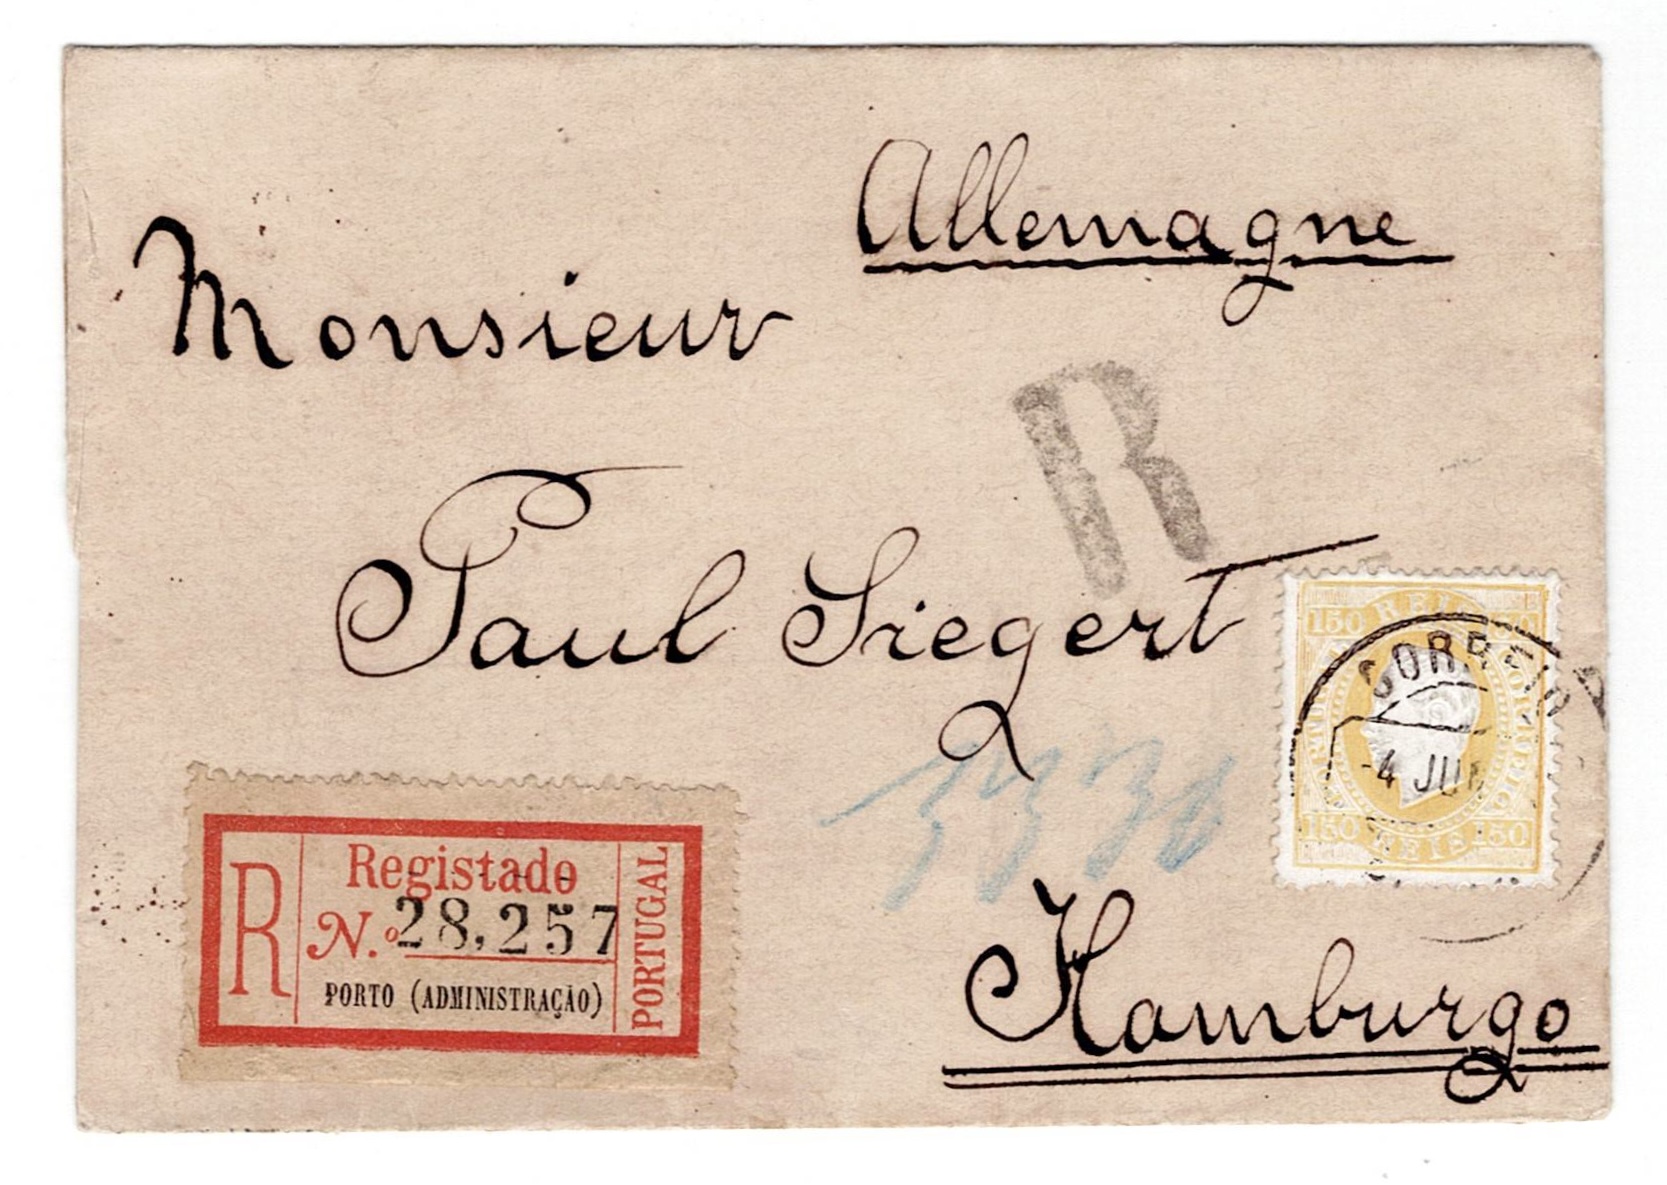 Allemagne
Monsieur
R
Paul Siegert
150 REIS
CORREIO
4 JUN
150 REIS 150
Registado
R
N.º 28,257
PORTUGAL
PORTO (ADMINISTRAÇÃO)
Hamburgo